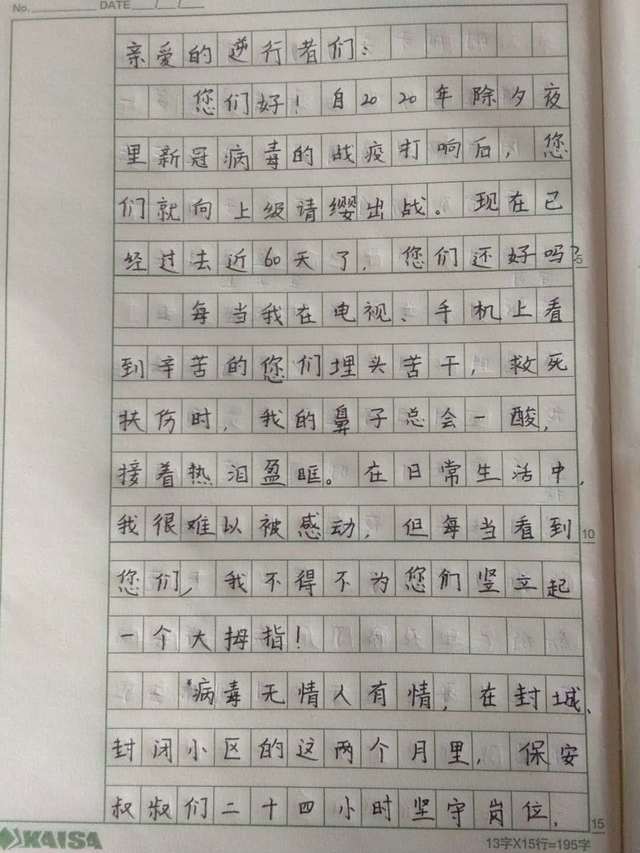 No. DATE / /
亲爱的逆行者们：
您们好！自2020年除夕夜
里新冠病毒的战疫打响后，您
们就向上级请缨出战。现在已
经过去近60天了，您们还好吗？
每当我在电视、手机上看
到辛苦的您们埋头苦干，救死
扶伤时，我的鼻子总会一酸，
接着热泪盈眶。在日常生活中，
我很难以被感动，但每当看到
10
您们，我不得不为您们竖立起
一个大拇指！
病毒无情人有情，在封城、
封闭小区的这两个月里，保安
叔叔们二十四小时坚守岗位，
15
KAISA
13字X15行=195字